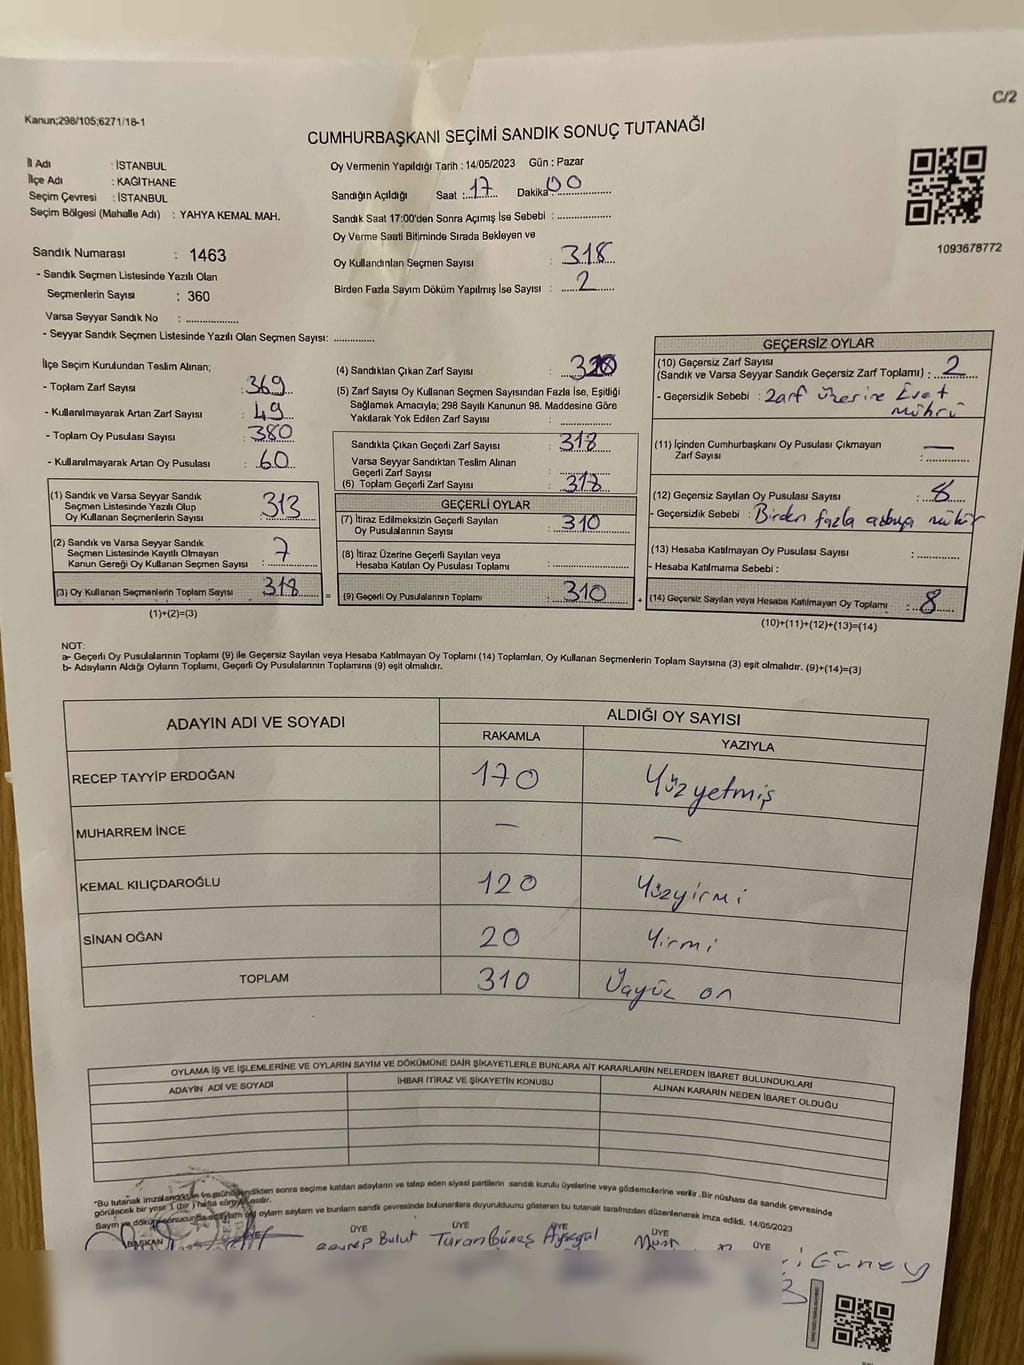 C/2
Kanun;298/105;6271/18-1
CUMHURBAŞKANI SEÇİMİ SANDIK SONUÇ TUTANAĞI
İl Adı : İSTANBUL
İlçe Adı : KAĞITHANE
Seçim Çevresi : İSTANBUL
Seçim Bölgesi (Mahalle Adı) : YAHYA KEMAL MAH.
Oy Vermenin Yapıldığı Tarih : 14/05/2023 Gün : Pazar
Sandığın Açıldığı Saat : 17 Dakika 00
Sandık Saat 17:00'den Sonra Açımış İse Sebebi :
Oy Verme Saati Bitiminde Sırada Bekleyen ve
Oy Kullandırılan Seçmen Sayısı : 318
Birden Fazla Sayım Döküm Yapılmış İse Sayısı : 2
1093678772
Sandık Numarası : 1463
- Sandık Seçmen Listesinde Yazılı Olan
Seçmenlerin Sayısı : 360
Varsa Seyyar Sandık No :
- Seyyar Sandık Seçmen Listesinde Yazılı Olan Seçmen Sayısı:
İlçe Seçim Kurulundan Teslim Alınan;
- Toplam Zarf Sayısı : 369
- Kullanılmayarak Artan Zarf Sayısı : 49
- Toplam Oy Pusulası Sayısı : 380
- Kullanılmayarak Artan Oy Pusulası : 60
(1) Sandık ve Varsa Seyyar Sandık
Seçmen Listesinde Yazılı Olup
Oy Kullanan Seçmenlerin Sayısı : 313
(2) Sandık ve Varsa Seyyar Sandık
Seçmen Listesinde Kayıtlı Olmayan
Kanun Gereği Oy Kullanan Seçmen Sayısı : 7
(3) Oy Kullanan Seçmenlerin Toplam Sayısı 318
(1)+(2)=(3)
(4) Sandıktan Çıkan Zarf Sayısı : 320
(5) Zarf Sayısı Oy Kullanan Seçmen Sayısından Fazla İse, Eşitliği
Sağlamak Amacıyla; 298 Sayılı Kanunun 98. Maddesine Göre
Yakılarak Yok Edilen Zarf Sayısı :
Sandıkta Çıkan Geçerli Zarf Sayısı : 318
Varsa Seyyar Sandıktan Teslim Alınan
Geçerli Zarf Sayısı :
(6) Toplam Geçerli Zarf Sayısı : 318
GEÇERLİ OYLAR
(7) İtiraz Edilmeksizin Geçerli Sayılan
Oy Pusulalarının Sayısı : 310
(8) İtiraz Üzerine Geçerli Sayılan veya
Hesaba Katılan Oy Pusulası Toplamı :
= (9) Geçerli Oy Pusulalarının Toplamı : 310 +
GEÇERSİZ OYLAR
(10) Geçersiz Zarf Sayısı
(Sandık ve Varsa Seyyar Sandık Geçersiz Zarf Toplamı) : 2
- Geçersizlik Sebebi : Zarf üzerine Evet
mührü
(11) İçinden Cumhurbaşkanı Oy Pusulası Çıkmayan
Zarf Sayısı : —
(12) Geçersiz Sayılan Oy Pusulası Sayısı : 8
- Geçersizlik Sebebi : Birden fazla mühür
(13) Hesaba Katılmayan Oy Pusulası Sayısı :
- Hesaba Katılmama Sebebi :
(14) Geçersiz Sayılan veya Hesaba Katılmayan Oy Toplamı : 8
(10)+(11)+(12)+(13)=(14)
NOT:
a- Geçerli Oy Pusulalarının Toplamı (9) ile Geçersiz Sayılan veya Hesaba Katılmayan Oy Toplamı (14) Toplamları, Oy Kullanan Seçmenlerin Toplam Sayısına (3) eşit olmalıdır. (9)+(14)=(3)
b- Adayların Aldığı Oyların Toplamı, Geçerli Oy Pusulalarının Toplamına (9) eşit olmalıdır.
ADAYIN ADI VE SOYADI ALDIĞI OY SAYISI
RAKAMLA YAZIYLA
RECEP TAYYİP ERDOĞAN 170 Yüzyetmiş
MUHARREM İNCE — —
KEMAL KILIÇDAROĞLU 120 Yüzyirmi
SİNAN OĞAN 20 Yirmi
TOPLAM 310 Üçyüz on
OYLAMA İŞ VE İŞLEMLERİNE VE OYLARIN SAYIM VE DÖKÜMÜNE DAİR ŞİKAYETLERLE BUNLARA AİT KARARLARIN NELERDEN İBARET BULUNDUKLARI
ADAYIN ADI VE SOYADI İHBAR İTİRAZ VE ŞİKAYETİN KONUSU ALINAN KARARIN NEDEN İBARET OLDUĞU
*Bu tutanak imzalandıktan ve mühürlendikten sonra seçime katılan adayların ve talep eden siyasi partilerin sandık kurulu üyelerine veya gözlemcilerine verilir. Bir nüshası da sandık çevresinde
görülecek bir yere 1 (bir) hafta süreyle asılır.
Sayım ve döküm sonucunda adayların oy sayıları ve bunların sandık çevresinde bulunanlara duyurulduunu gösteren bu tutanak tarafımızdan düzenlenerek imza edildi. 14/05/2023
BAŞKAN ÜYE ÜYE ÜYE ÜYE ÜYE
Bulut Turan Güneş Ayşegül
Güney